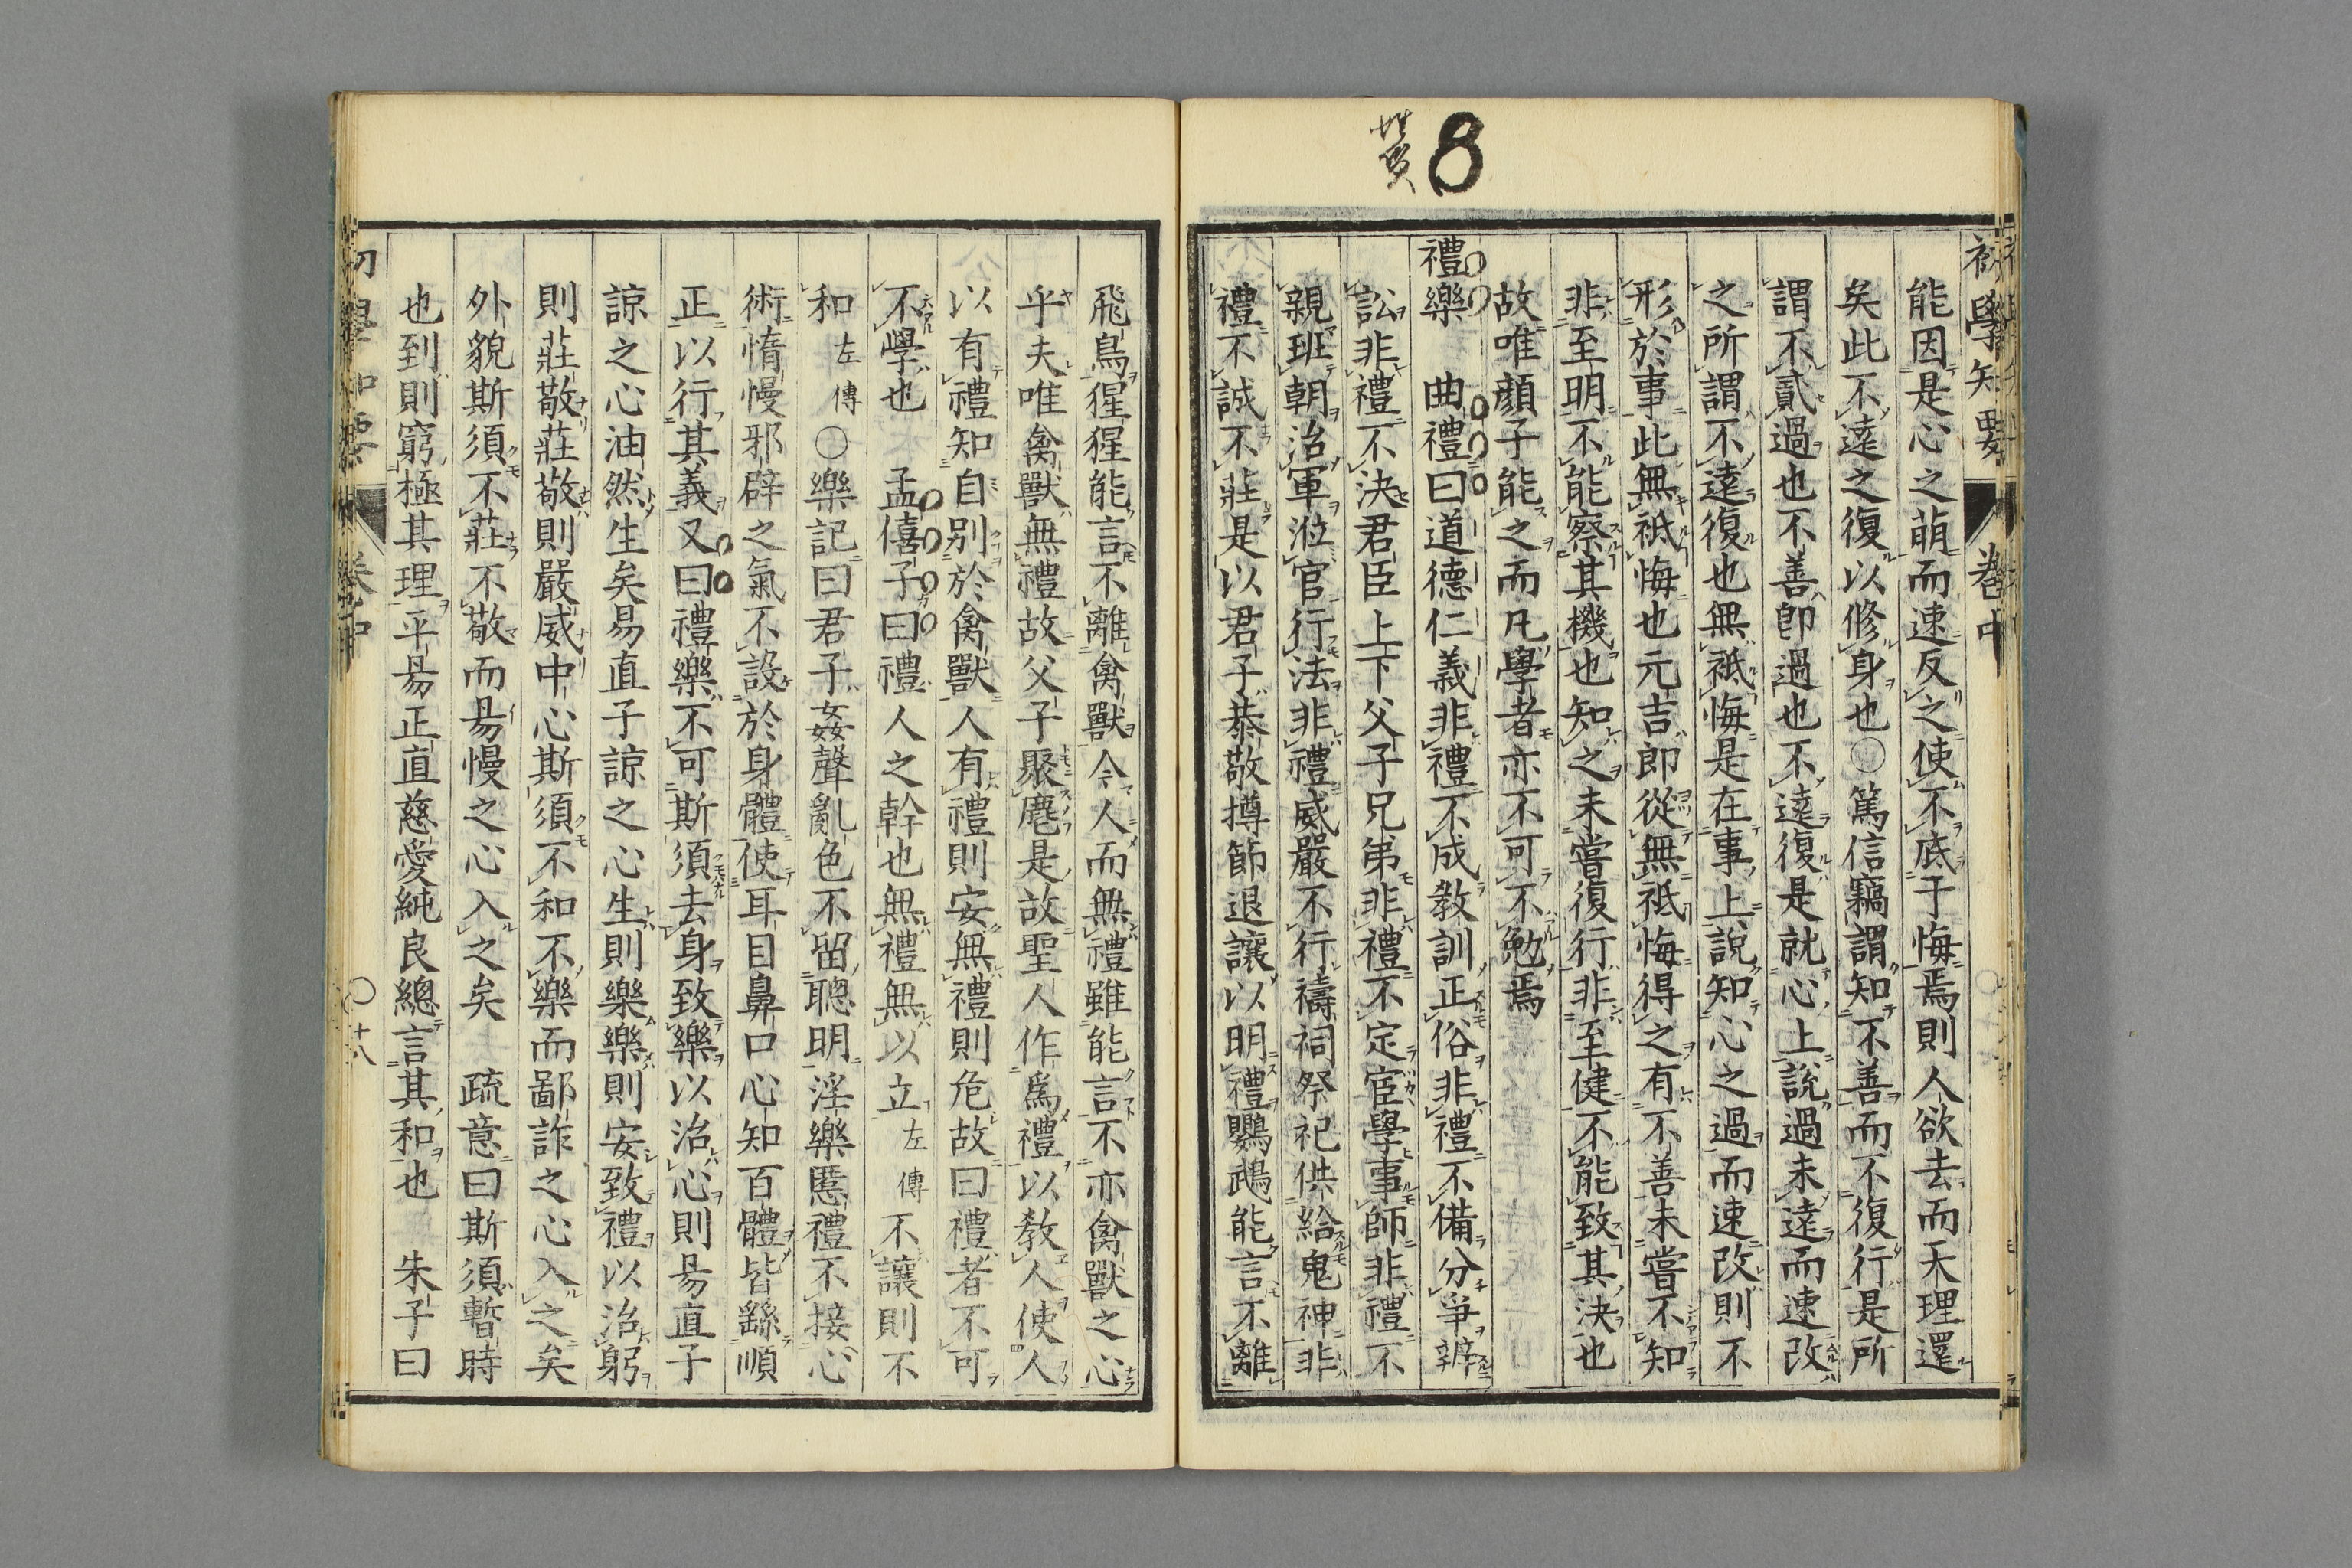 8
初學知要
卷中
能因是心之萌而速反之使不底于悔焉則人欲去而天理還
矣此不遠之復以修身也○篤信竊謂知不善而不復行是所
謂不貳過也不善卽過也不遠復是就心上說過未遠而速改
之所謂不遠復也無祗悔是在事上說知心之過而速改則不
形於事此無祗悔也元吉卽從無祗悔得之有不善未嘗不知
非至明不能察其機也知之未嘗復行非至健不能致其決也
故唯顏子能之而凡學者亦不可不勉焉
禮樂 曲禮曰道德仁義非禮不成教訓正俗非禮不備分爭辨
訟非禮不決君臣上下父子兄弟非禮不定宦學事師非禮不
親班朝治軍涖官行法非禮威嚴不行禱祠祭祀供給鬼神非
禮不誠不莊是以君子恭敬撙節退讓以明禮鸚鵡能言不離
飛鳥猩猩能言不離禽獸今人而無禮雖能言不亦禽獸之心
乎夫唯禽獸無禮故父子聚麀是故聖人作爲禮以教人使人
以有禮知自别於禽獸人有禮則安無禮則危故曰禮者不可
不學也 孟僖子曰禮人之幹也無禮無以立左傳不讓則不
和左傳○樂記曰君子姦聲亂色不留聰明淫樂慝禮不接心
術惰慢邪辟之氣不設於身體使耳目鼻口心知百體皆繇順
正以行其義又曰禮樂不可斯須去身致樂以治心則易直子
諒之心油然生矣易直子諒之心生則樂樂則安致禮以治躬
則莊敬莊敬則嚴威中心斯須不和不樂而鄙詐之心入之矣
外貌斯須不莊不敬而易慢之心入之矣 疏意曰斯須暫時
也到則窮極其理平易正直慈愛純良總言其和也 朱子曰
初學知要
卷中
○十八